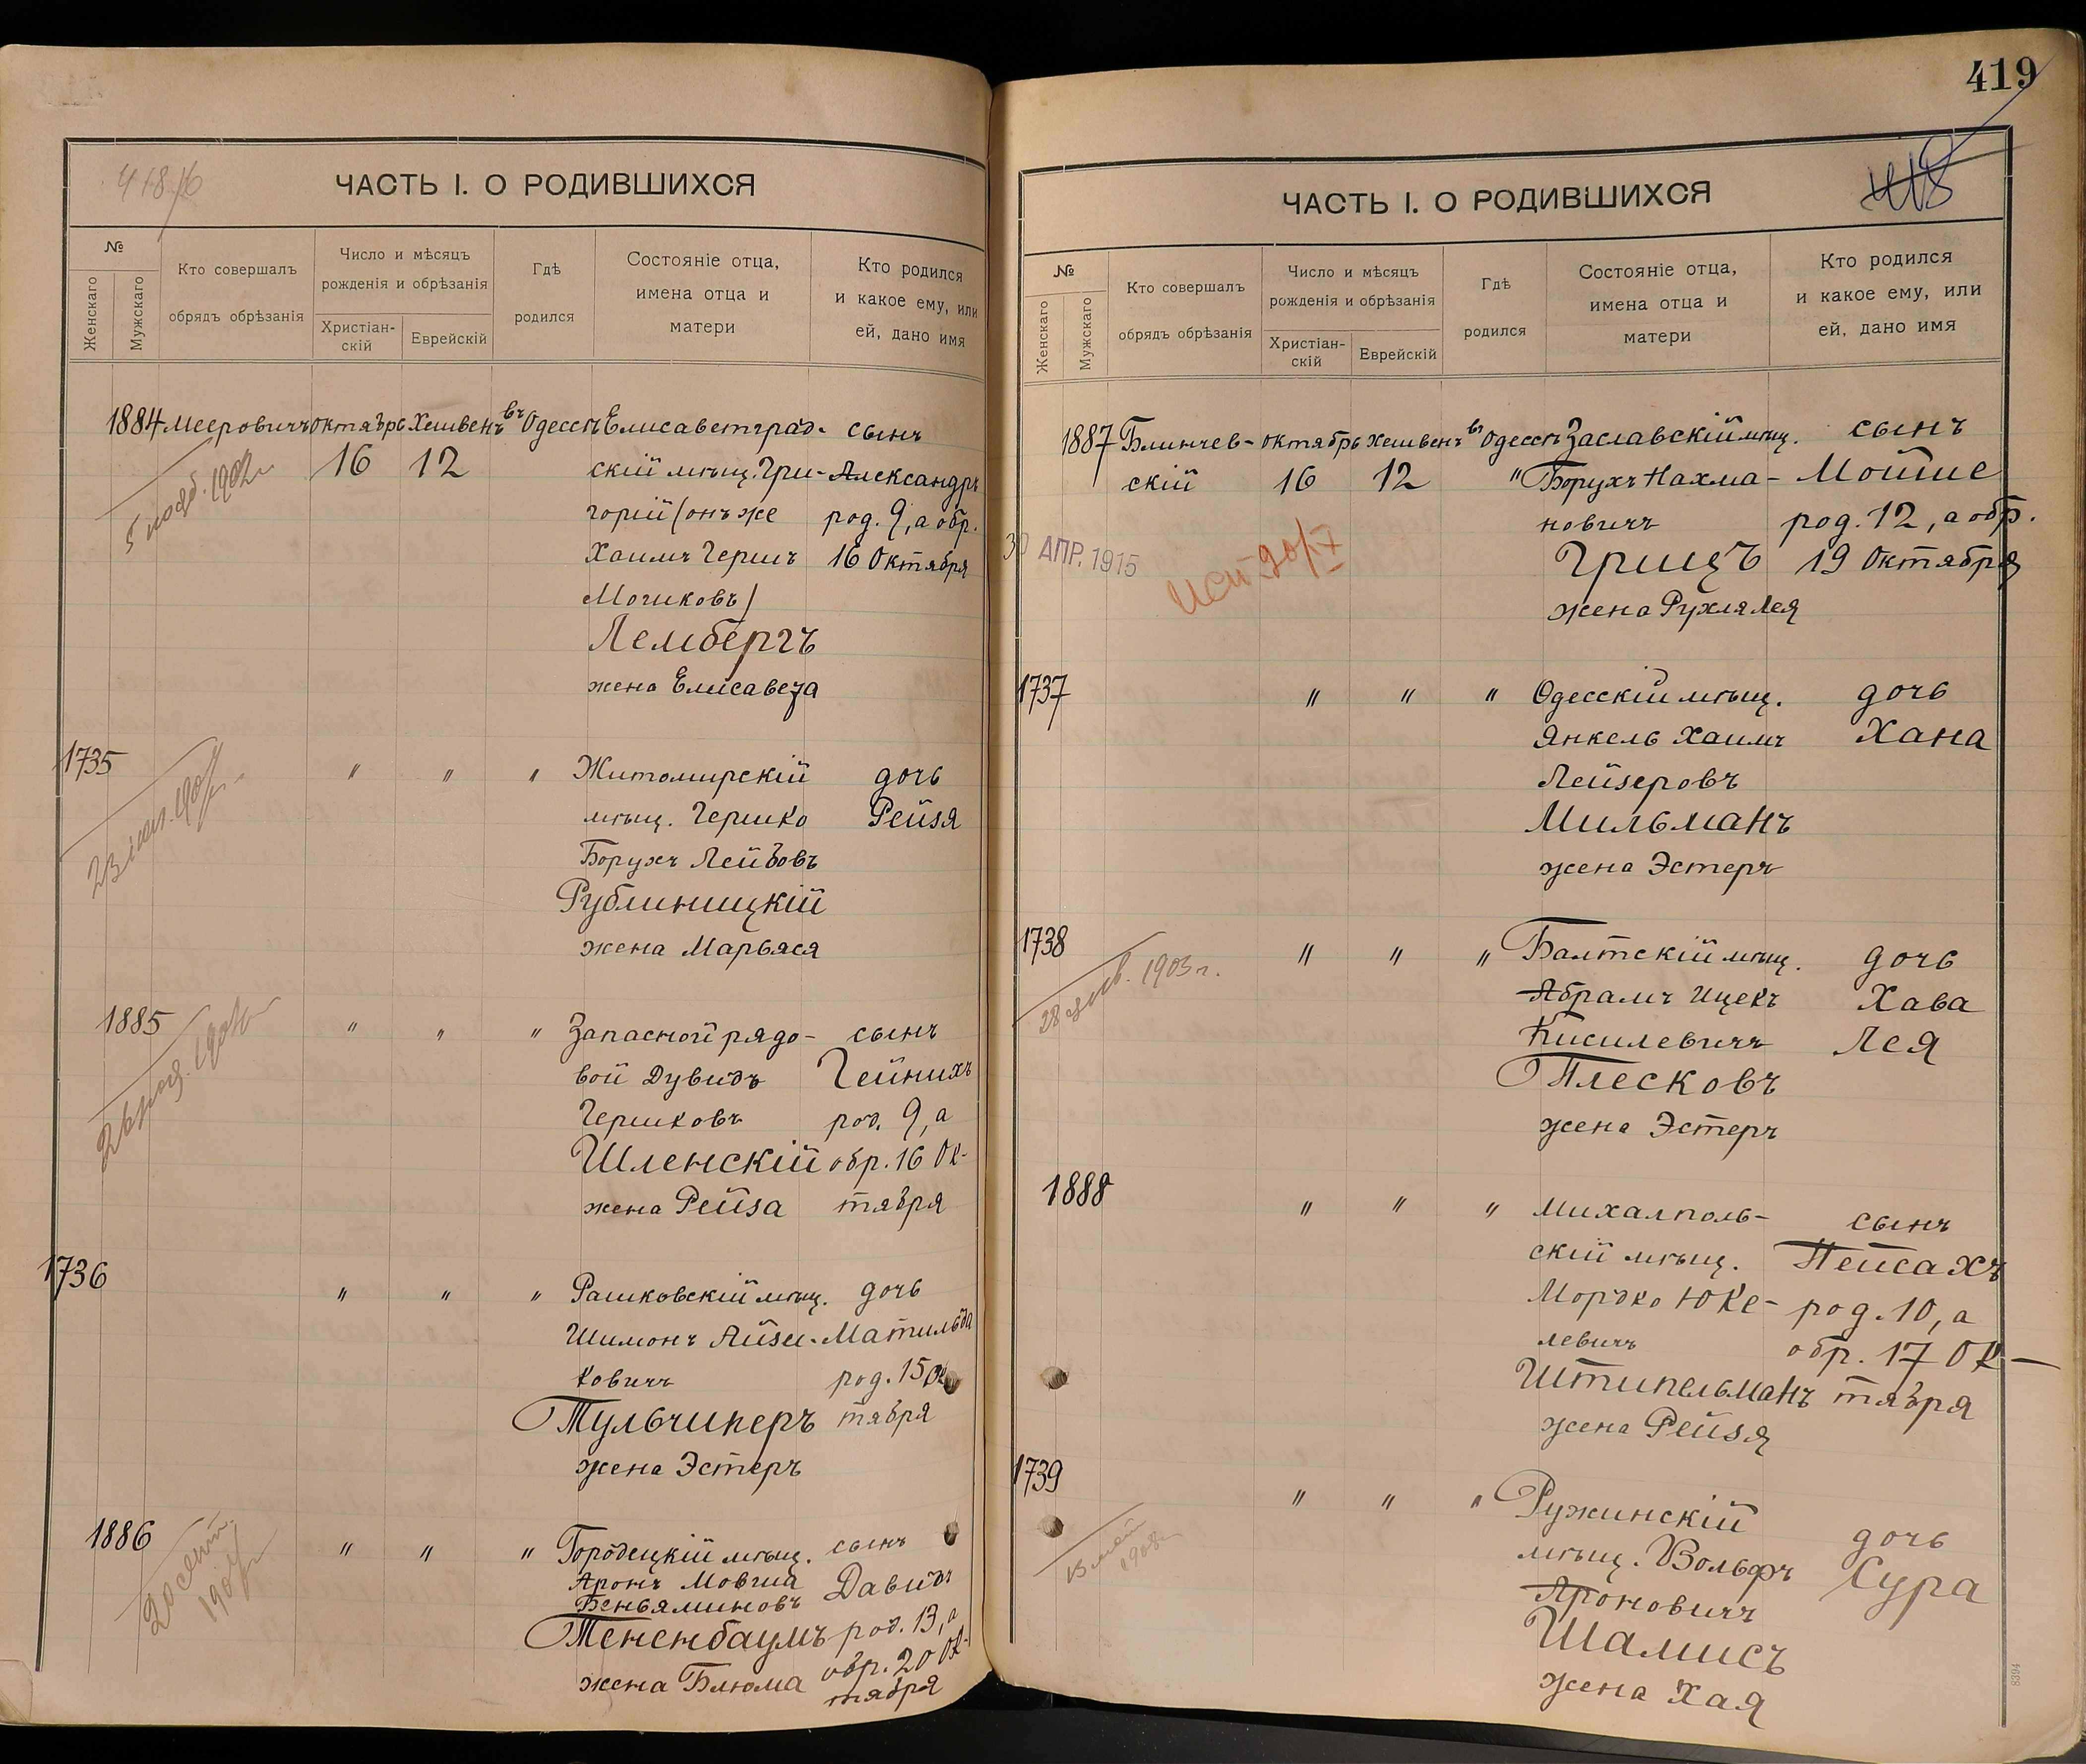 418 / б
ЧАСТЬ I. О РОДИВШИХСЯ
№
Женскаго
Мужскаго
Кто совершалъ
обрядъ обрѣзанія
Число и мѣсяцъ
рожденія и обрѣзанія
Христіан-
скій
Еврейскій
Гдѣ
родился
Состояніе отца,
имена отца и
матери
Кто родился
и какое ему, или
ей, дано имя
1884 Мееровичъ Октябрь Хешвенъ въ Одессѣ Елисаветград- сынъ
16 12 скій мѣщ. Гри- Александръ
5 нояб. 1902 г.
горій (онъ же род. 9, а обр.
Хаимъ Гершъ 16 Октября
Мошковъ)
Лембергъ
жена Елисавета
1735 " " " Житомирскій дочь
мѣщ. Гершко Рейзя
Борухъ Лейбовъ
Рублиницкій
жена Марьяся
1885 " " " Запасной рядо- сынъ
вой Дувидъ Гейнихъ
Гершковъ род. 9, а
Шленскій обр. 16 Ок-
жена Рейза тября
1736 " " " Рашковскій мѣщ. дочь
Шимонъ Айзи- Матильда
ковичъ род. 15 Ок
Тульчинеръ тября
жена Эстеръ
1886 " " " Городецкій мѣщ. сынъ
20 сент.
Аронъ Мовша Давидъ
Беньяминовъ
Тененбаумъ род. 13, а
обр. 20 Ок-
жена Блюма тября
419
418
ЧАСТЬ I. О РОДИВШИХСЯ
№
Женскаго
Мужскаго
Кто совершалъ
обрядъ обрѣзанія
Число и мѣсяцъ
рожденія и обрѣзанія
Христіан-
скій
Еврейскій
Гдѣ
родился
Состояніе отца,
имена отца и
матери
Кто родился
и какое ему, или
ей, дано имя
1887 Блинчев- октябрь хешвенъ въ Одессѣ Заславскій мѣщ. сынъ
скій 16 12 " Борухъ Нахма- Мойше
новичъ род. 12, а обр.
30 АПР. 1915
Грицъ 19 Октября
жена Рухля Лея
1737 " " " Одесскій мѣщ. дочь
Янкель Хаимъ Хана
Лейзеровъ
Мильманъ
жена Эстеръ
1738 " " " Балтскій мѣщ. дочь
1903 г.
Абрамъ Ицекъ Хава
Кисилевичъ Лея
Плесковъ
жена Эстеръ
1888 " " " Михалполь- сынъ
скій мѣщ. Пейсахъ
Мордко Юке- род. 10, а
левичъ обр. 17 Ок-
Штипельманъ тября
жена Рейзя
1739 " " " Ружинскій дочь
15 мая
1908 г.
мѣщ. Вольфъ Сура
Ароновичъ
Шамисъ
жена Хая
8394